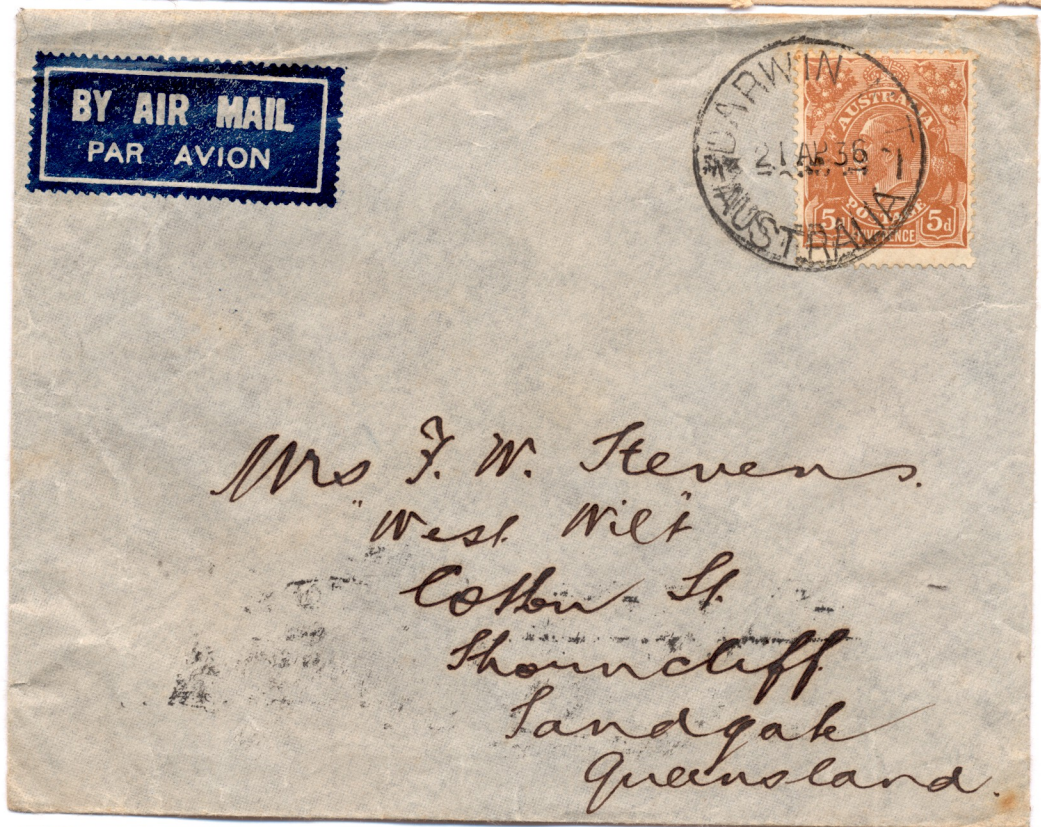 BY AIR MAIL
PAR AVION
DARWIN
21 AP 36
AUSTRALIA
AUSTRALIA
POSTAGE
5d 5d
Mrs F. W. Stevens.
"West Wilt"
St.
Shorncliff
Sandgate
Queensland.